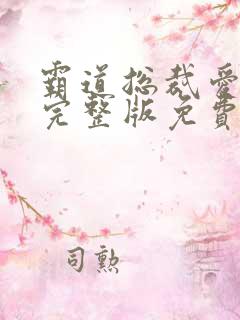 霸道总裁爱
完整版免費
司勲